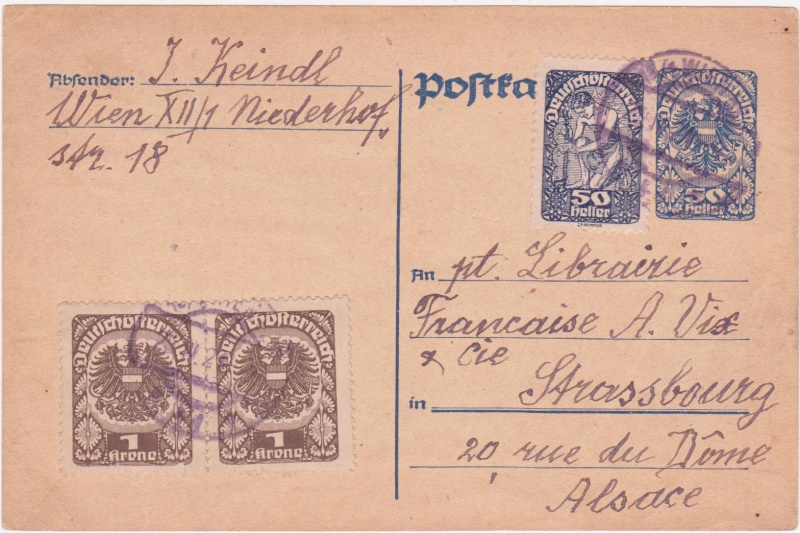 Absender: J. Keindl
Wien XII/1 Niederhof
str. 18
Postka
Deutschösterreich
50
Heller
Deutschösterreich
50
Heller
An pt. Librairie
Francaise A. Vix
& Cie
in Strassbourg
20 rue du Dôme
Alsace
Deutschösterreich
1
Krone
Deutschösterreich
1
Krone